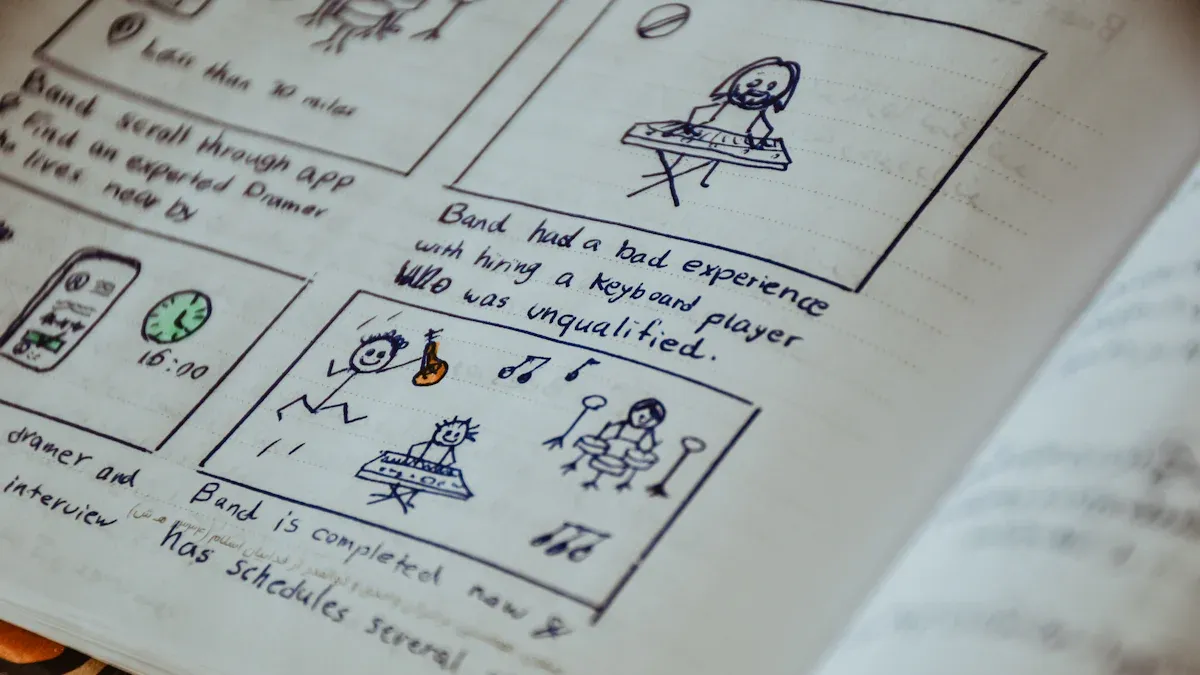 Less than 30 miles
Band scroll through app
Find an experted Dramer
lives near by
Band had a bad experience
with hiring a keyboard player
who was unqualified.
16:00
dramer and
interview
Band is completed now &
has schedules several